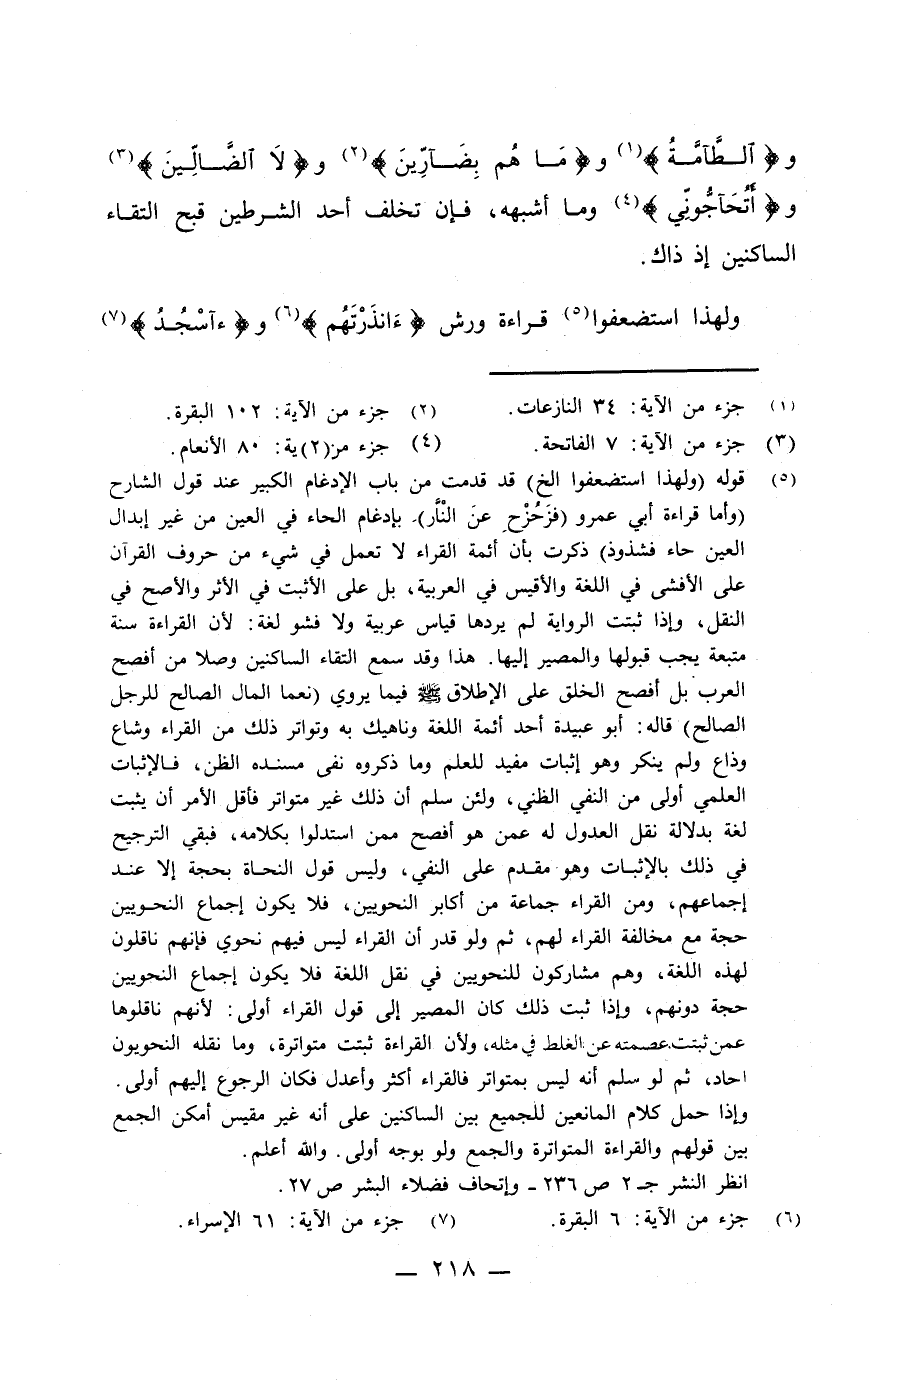 و﴿ ٱلـطَّآمَّـةُ ﴾(١) و﴿ مَـا هُم بِضَـآرِّينَ ﴾(٢) و﴿ لَا ٱلضَّـالِّـينَ ﴾(٣)
و﴿ أَتُحَآجُّونِّي ﴾(٤) ومـا أشبهه، فـإن تخلف أحد الشـرطين قبح التقـاء
الساكنين إذ ذاك.
ولهذا استضعفوا(٥) قـراءة ورش ﴿ ءَانذَرْتَهُم ﴾(٦) و﴿ ءآسْجُـدُ ﴾(٧)
(١) جزء من الآية: ٣٤ النازعات. (٢) جزء من الآية: ١٠٢ البقرة.
(٣) جزء من الآية: ٧ الفاتحة. (٤) جزء مز(٢)ية: ٨٠ الأنعام.
(٥) قوله (ولهذا استضعفوا الخ) قد قدمت من باب الإدغام الكبير عند قول الشارح
(وأما قراءة أبي عمرو (فزَحُزْحِ عنَ النَّار). بإدغام الحاء في العين من غير إبدال
العين حاء فشذوذ) ذكرت بأن أئمة القراء لا تعمل في شيء من حروف القرآن
على الأفشى في اللغة والأقيس في العربية، بل على الأثبت في الأثر والأصح في
النقل، وإذا ثبتت الرواية لم يردها قياس عربية ولا فشو لغة: لأن القراءة سنة
متبعة يجب قبولها والمصير إليها. هذا وقد سمع التقاء الساكنين وصلا من أفصح
العرب بل أفصح الخلق على الإطلاق ﷺ فيما يروي (نعما المال الصالح للرجل
الصالح) قاله: أبو عبيدة أحد أئمة اللغة وناهيك به وتواتر ذلك من القراء وشاع
وذاع ولم ينكر وهو إثبات مفيد للعلم وما ذكروه نفى مسنده الظن، فـالإثبات
العلمي أولى من النفي الظني، ولئن سلم أن ذلك غير متواتر فأقل الأمر أن يثبت
لغة بدلالة نقل العدول له عمن هو أفصح ممن استدلوا بكلامه، فبقي الترجيح
في ذلك بالإثبـات وهو مقـدم على النفي، وليس قول النحـاة بحجة إلا عنـد
إجماعهم، ومن القراء جماعة من أكابر النحويين، فلا يكون إجماع النحـويين
حجة مع مخالفة القراء لهم، ثم ولو قدر أن القراء ليس فيهم نحوي فإنهم ناقلون
لهذه اللغة، وهم مشاركون للنحويين في نقل اللغة فلا يكون إجماع النحويين
حجة دونهم، وإذا ثبت ذلك كان المصير إلى قول القراء أولى: لأنهم ناقلوها
عمن ثبتت عصمته عن الغلط في مثله، ولأن القراءة ثبتت متواترة، وما نقله النحويون
احاد، ثم لو سلم أنه ليس بمتواتر فالقراء أكثر وأعدل فكان الرجوع إليهم أولى.
وإذا حمل كلام المانعين للجميع بين الساكنين على أنه غير مقيس أمكن الجمع
بين قولهم والقراءة المتواترة والجمع ولو بوجه أولى. والله أعلم.
انظر النشر جـ ٢ ص ٢٣٦ - وإتحاف فضلاء البشر ص ٢٧.
(٦) جزء من الآية: ٦ البقرة. (٧) جزء من الآية: ٦١ الإسراء.
— ٢١٨ —